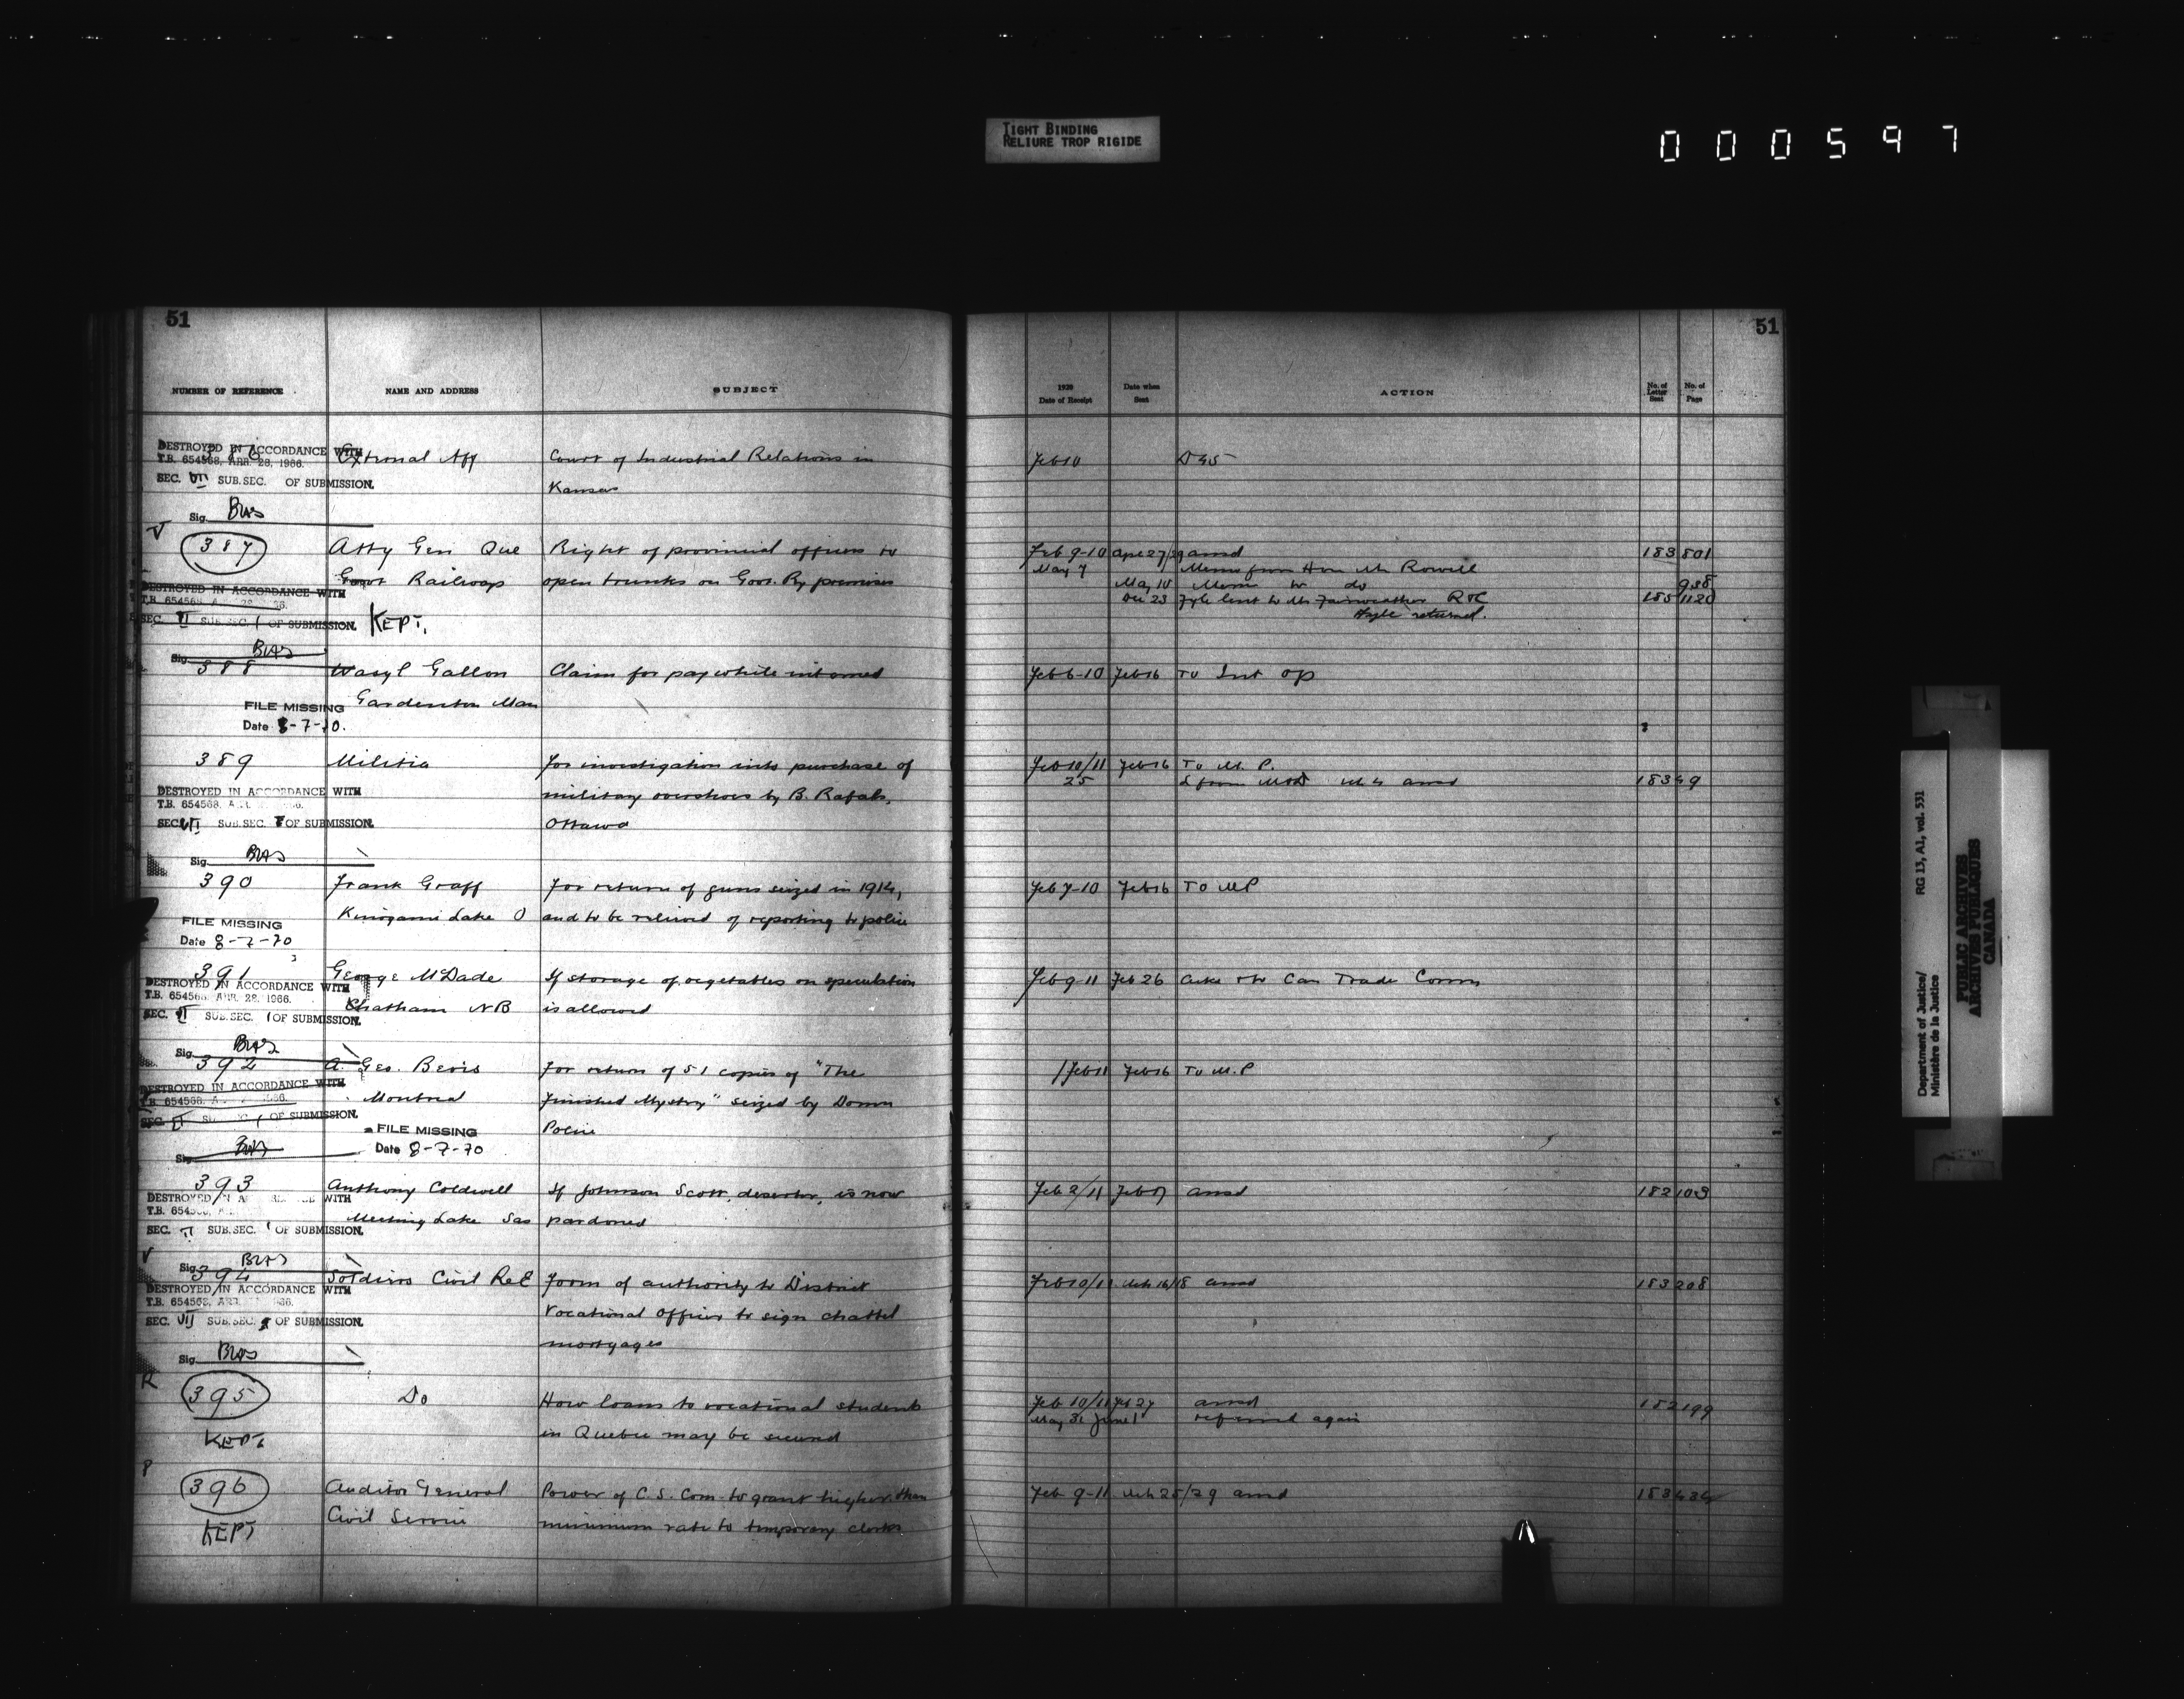 TIGHT BINDING
RELIURE TROP RIGIDE
000597
51
NUMBER OF REFERENCE NAME AND ADDRESS SUBJECT
DESTROYED IN ACCORDANCE WITH
T.B. 654568, APR. 28, 1966.
SEC. VII SUB.SEC. OF SUBMISSION.
Sig.
External Aff Court of Industrial Relations in
Kansas
387 Atty Gen Que Right of provincial officers to
Govt Railways open trunks on Govt. Ry premises
DESTROYED IN ACCORDANCE WITH
T.B. 654568
SEC. VI SUB SEC. 1 OF SUBMISSION. KEPT.
Sig.
388 Wasyl Gallon Claim for pay while interned
Gardenton Man
FILE MISSING
Date 8-7-70.
389 Militia For investigation into purchase of
DESTROYED IN ACCORDANCE WITH military overshoes by B. Rafals,
T.B. 654568,
SEC. VI SUB.SEC. OF SUBMISSION. Ottawa
Sig.
390 Frank Graff For return of guns seized in 1914,
Kinogami Lake O and to be relieved of reporting to police
FILE MISSING
Date 8-7-70
391 George McDade If storage of vegetables on speculation
DESTROYED IN ACCORDANCE WITH
T.B. 654568, APR. 28, 1966.
Chatham NB is allowed
SEC. VI SUB.SEC. 1 OF SUBMISSION.
Sig.
392 A. Geo. Bevis For return of 51 copies of "The
DESTROYED IN ACCORDANCE WITH
T.B. 654568,
Montreal Finished Mystery" seized by Domn
SEC. VI OF SUBMISSION.
FILE MISSING Police
Sig. Date 8-7-70
393 Anthony Coldwell If Johnson Scott, deserter, is now
DESTROYED IN WITH
T.B.
Meeting Lake Sas pardoned
SEC. VI SUB.SEC. 1 OF SUBMISSION.
Sig.
394 Soldiers Civil ReE Form of authority to District
DESTROYED IN ACCORDANCE WITH
T.B. 654568,
Vocational Officer to sign chattel
SEC. VII SUB.SEC. OF SUBMISSION.
mortgages
Sig.
395 Do How loans to vocational students
KEPT. in Quebec may be secured
396 Auditor General Power of C.S. Com. to grant higher than
KEPT Civil Service minimum rate to temporary clerks
51
1920
Date of Receipt Date when
Sent ACTION No. of
Letter
Sent No. of
Page
Feb 10 D 45
Feb 9-10 Apr 27/29 ansd 183 801
May 7 Memo from Hon Mr Rowell
May 10 Memo to do 938
Dec 23 Fyle lent to Mr Fairweather 185 1120
Fyle returned.
Feb 6-10 Feb 16 To Int Op
Feb 10/11 Feb 16 To M. P.
25 ansd 183 49
Feb 7-10 Feb 16 To MP
Feb 9-11 Feb 26 Can Trade Comm
Feb 11 Feb 16 To M.P
Feb 2/11 Feb 17 ansd 182 103
Feb 10/11 Mch 16/18 ansd 183 208
Feb 10/11 Feb 27 ansd 182 199
May 31 June 1 referred again
Feb 9-11 Mch 25/29 ansd 183 434
Department of Justice/ RG 13, A1, vol. 531
Ministère de la Justice
PUBLIC ARCHIVES
ARCHIVES PUBLIQUES
CANADA